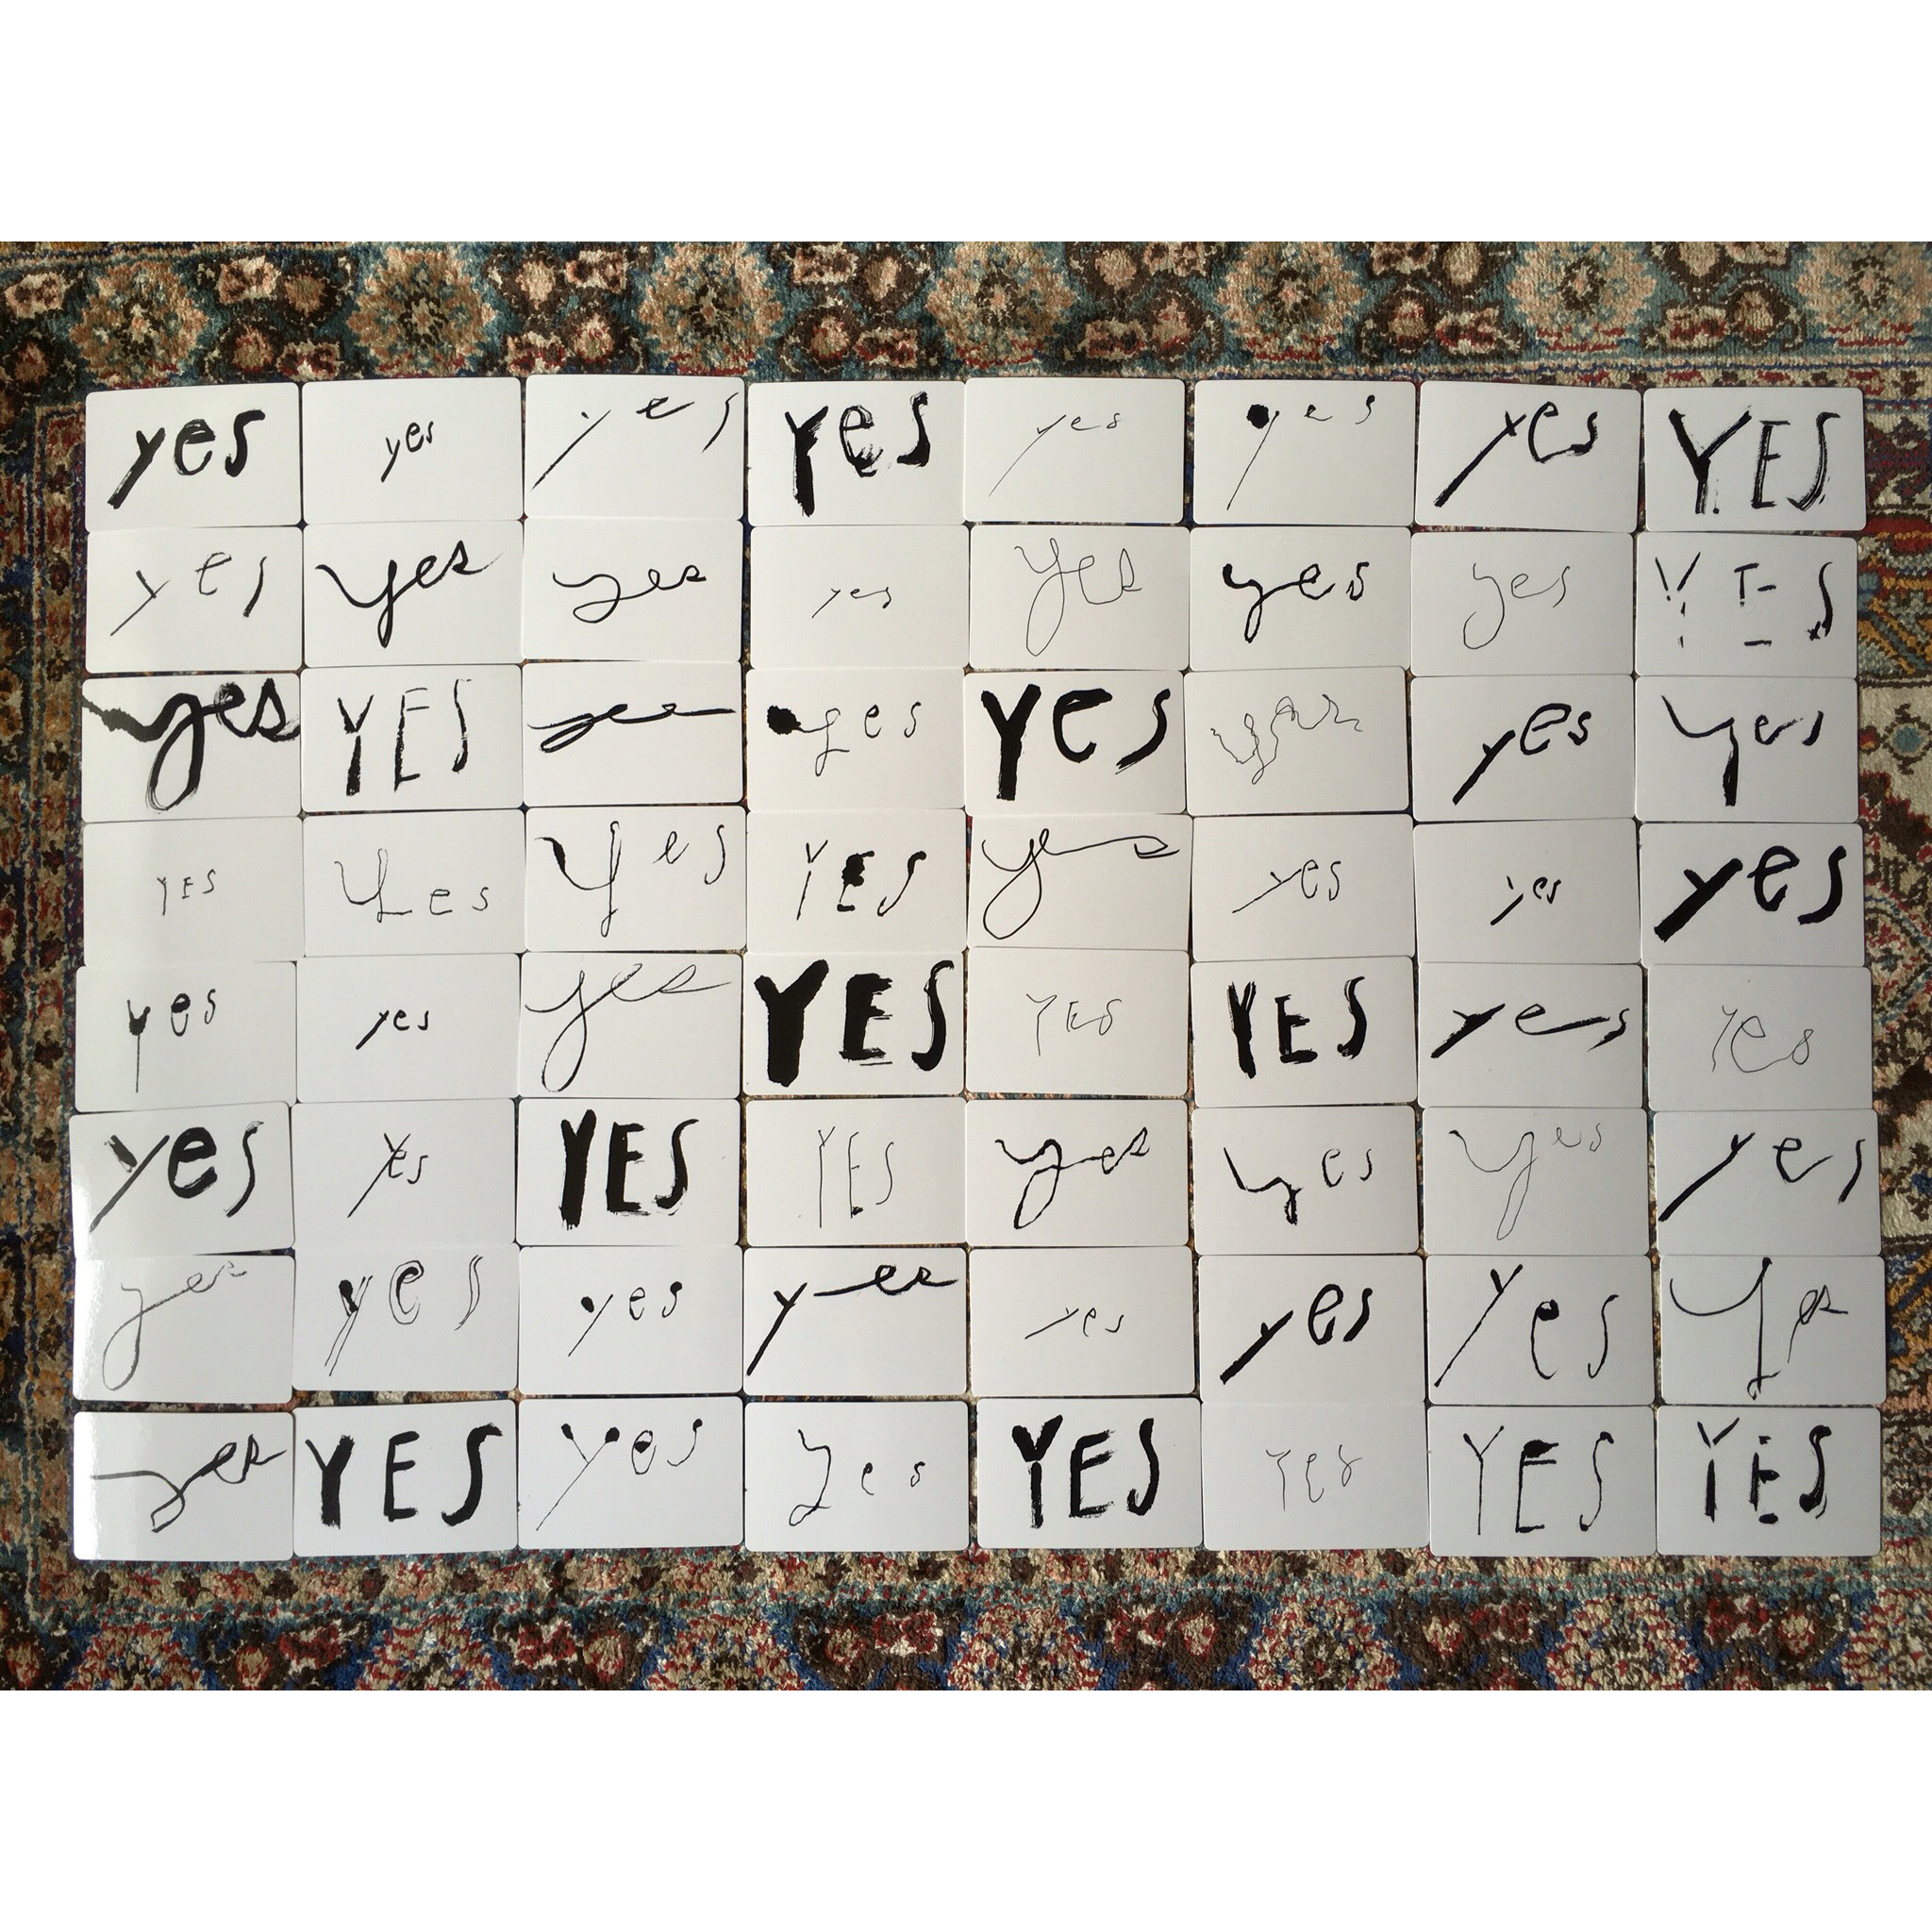 yes yes yes yes yes yes yes YES
yes yes yes yes yes yes yes YES
yes YES yes yes yes yes yes yes
YES yes yes YES yes yes yes yes
yes yes yes YES YES YES yes yes
yes yes YES YES yes yes yes yes
yes yes yes yes yes yes yes yes
yes YES yes yes YES yes YES YES